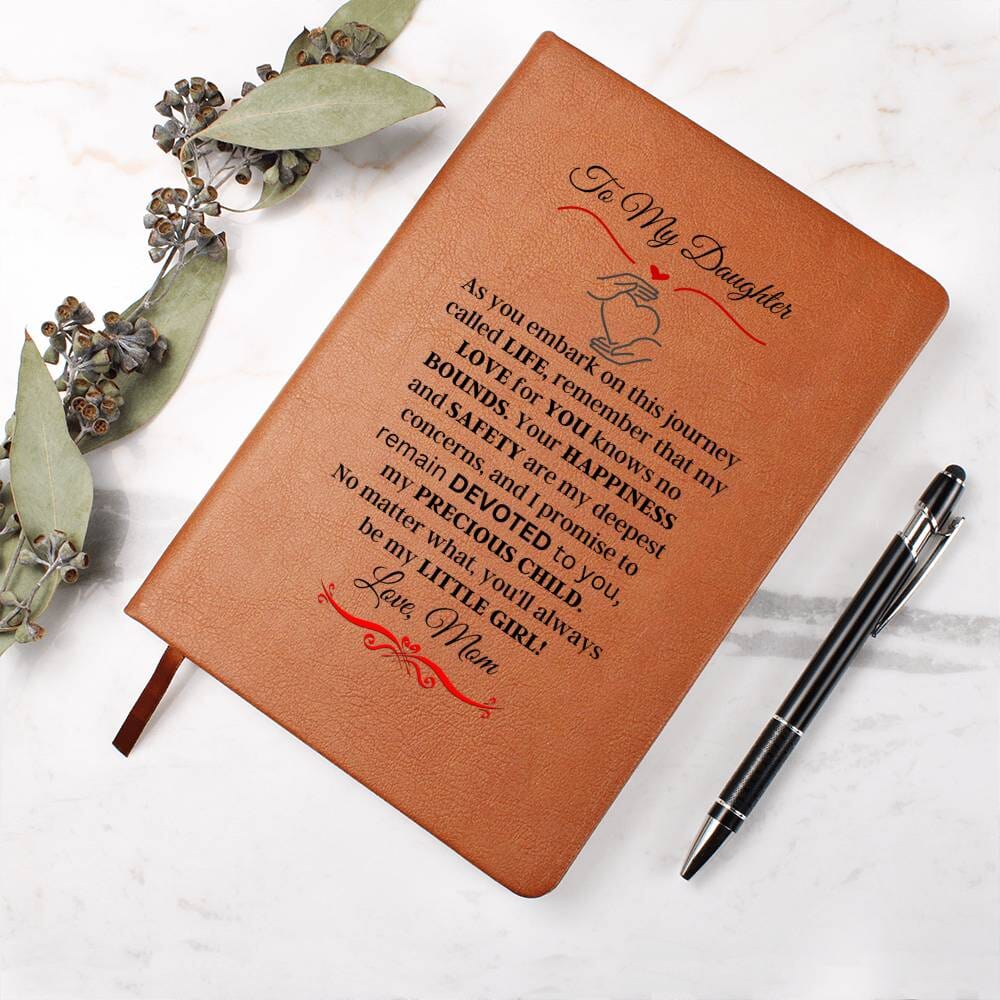 To My Daughter
As you embark on this journey
called LIFE, remember that my
LOVE for YOU knows no
BOUNDS. Your HAPPINESS
and SAFETY are my deepest
concerns, and I promise to
remain DEVOTED to you,
my PRECIOUS CHILD.
No matter what, you'll always
be my LITTLE GIRL!
Love, Mom